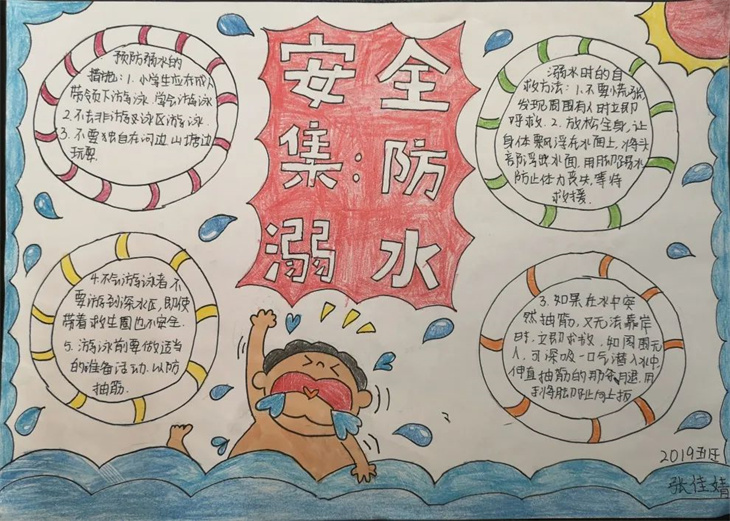 安全
集:防
溺水
预防溺水的
措施:1.小学生应在成人
带领下游泳.学会游泳
2.不去非游泳区游泳.
3.不要独自在河边.山塘边
玩耍.
溺水时的自
救方法:1.不要慌张
发现周围有人时立即
呼救.2.放松全身,让
身体飘浮在水面上,将头
部浮出水面.用脚踢水
防止体力丧失,等待
救援.
4.不会游泳者.不
要游到深水区,即使
带着救生圈也不安全.
5.游泳前要做适当
的准备活动.以防
抽筋.
3.如果在水中突
然抽筋,又无法靠岸
时.立即求救.如周围无
人,可深吸一口气潜入水中.
伸直抽筋的那条腿.用
手将脚趾向上扳
2019
张佳婧